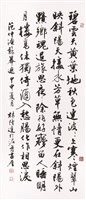 碧雲天黃葉地秋色連波波上寒煙翠山
映斜陽天接水芳草無情更在斜陽外
黯鄉魂追旅思夜夜除非好夢留人睡明
月樓高休獨倚酒入愁腸化作相思淚
范仲淹蘇幕遮 甲申